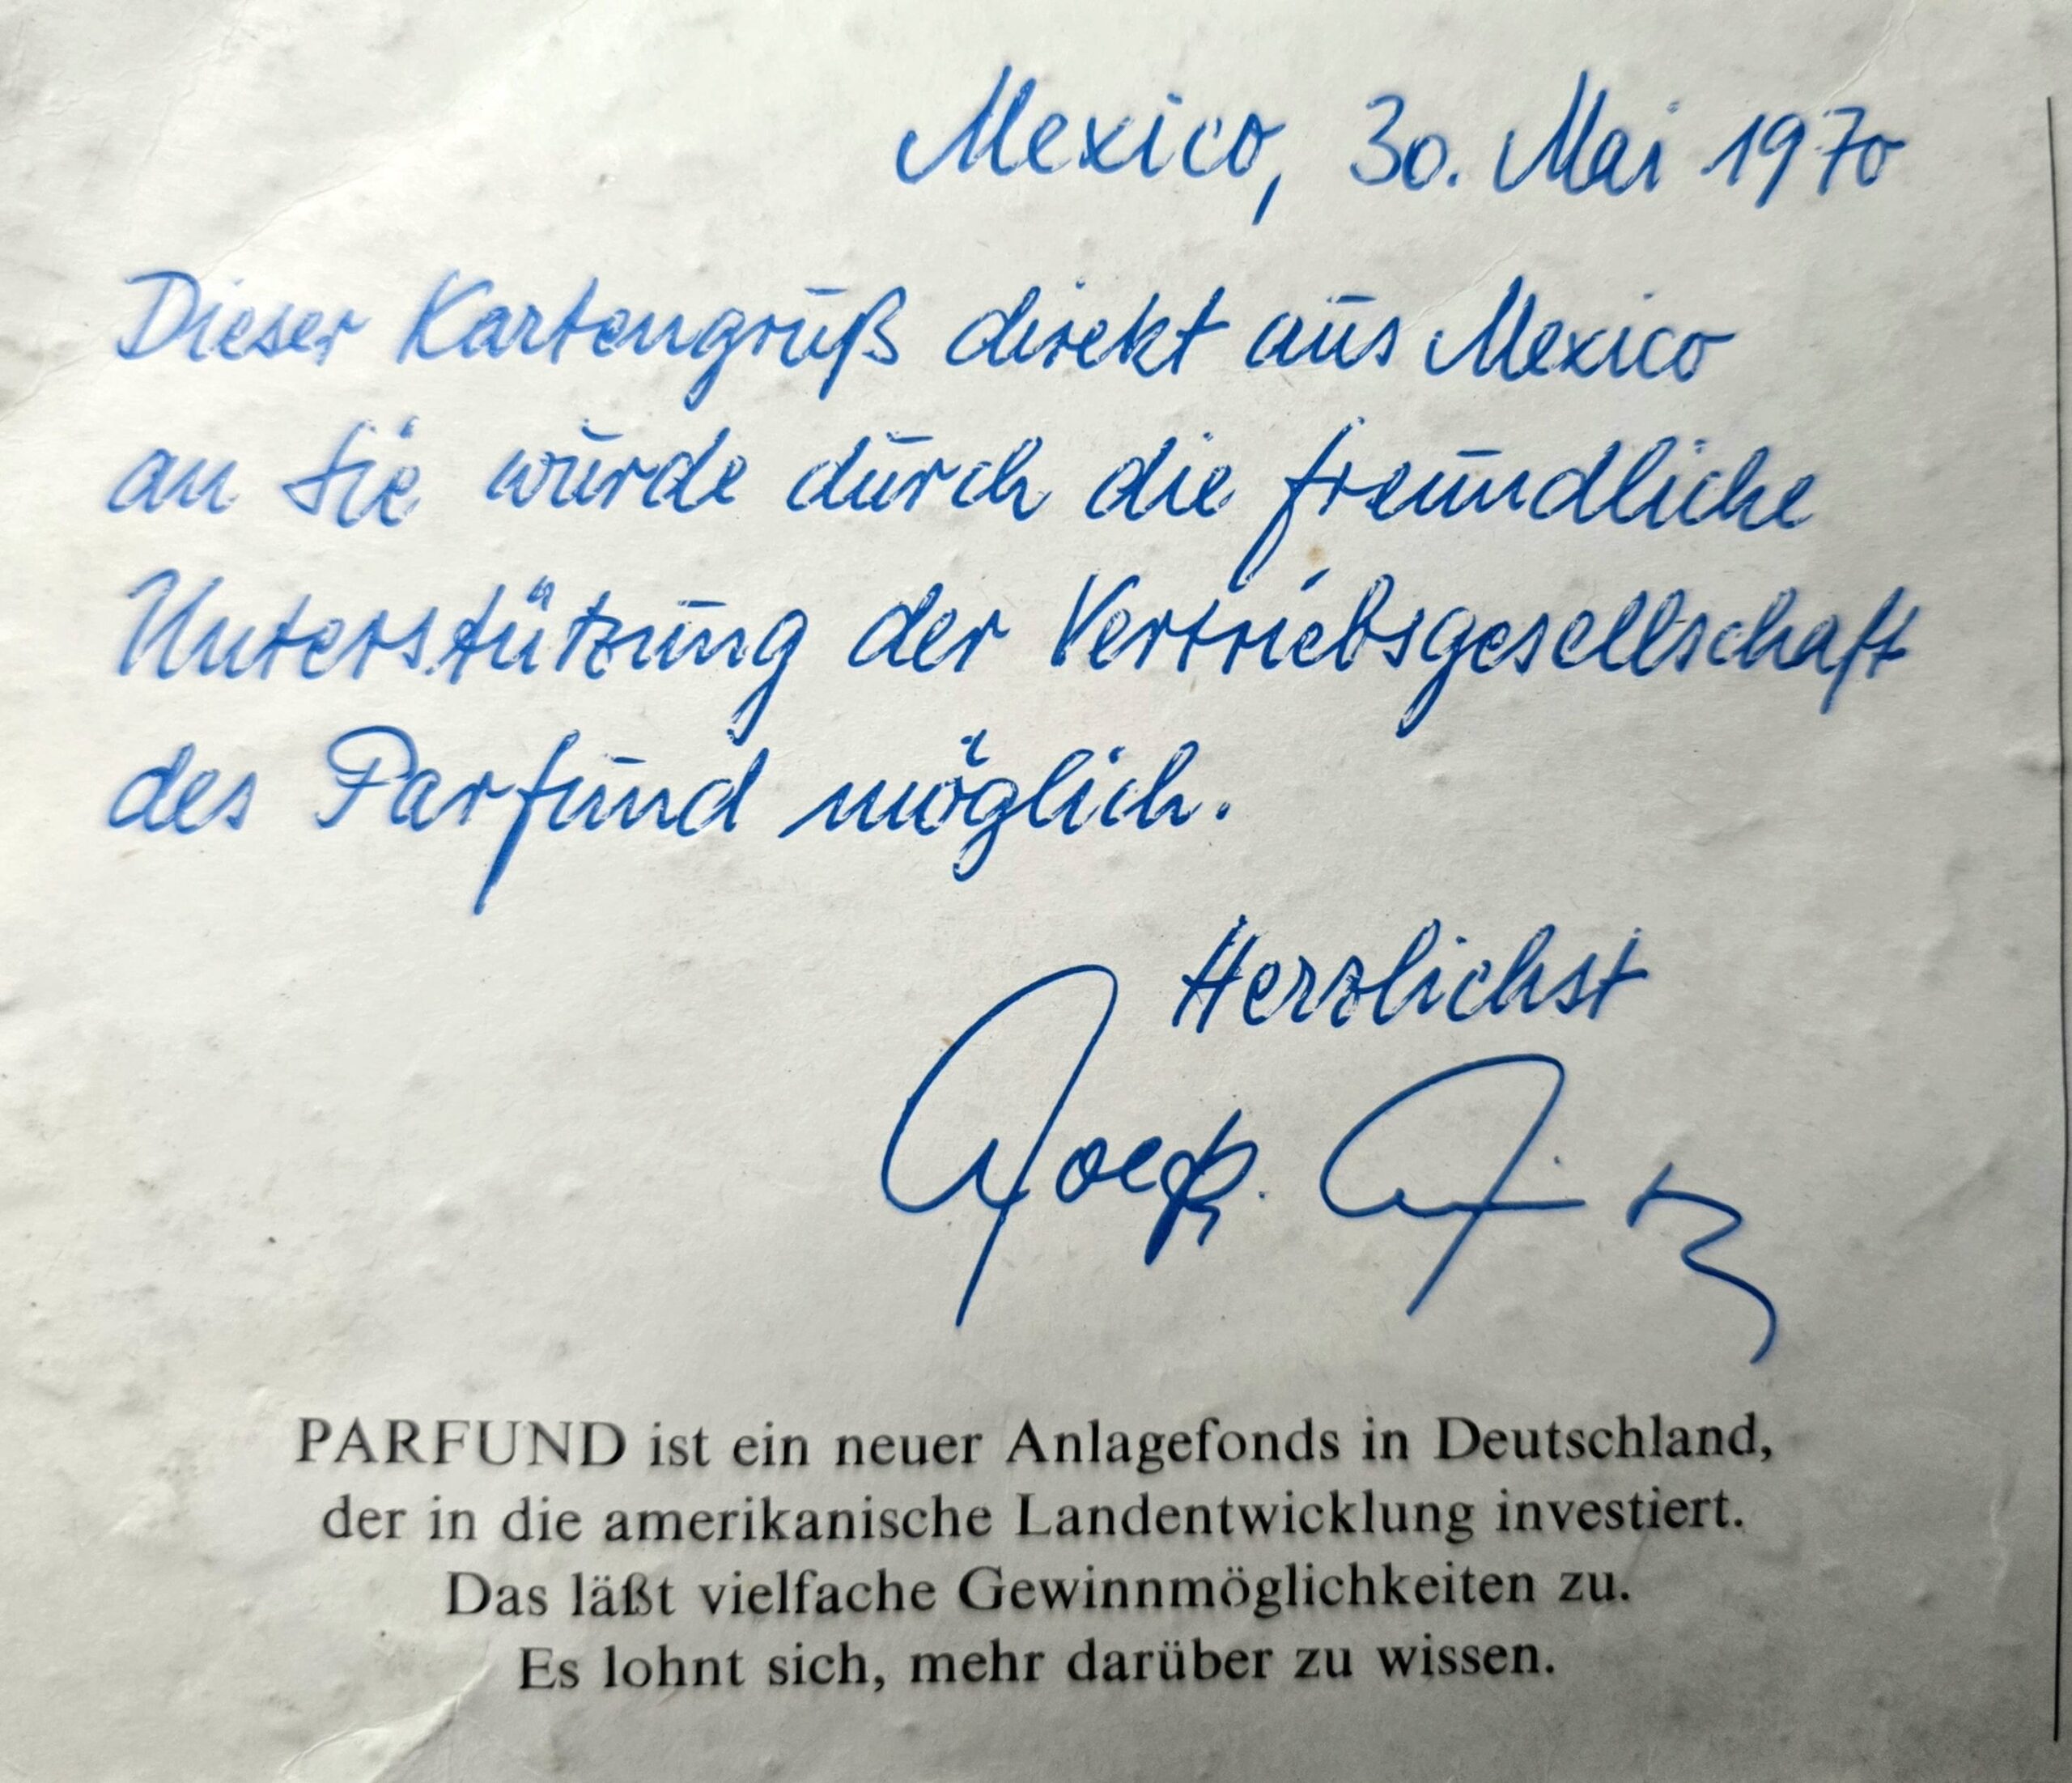 Mexico, 30. Mai 1970
Dieser Kartengruß direkt aus Mexico
an Sie wurde durch die freundliche
Unterstützung der Vertriebsgesellschaft
des Parfund möglich.
Herzlichst
PARFUND ist ein neuer Anlagefonds in Deutschland,
der in die amerikanische Landentwicklung investiert.
Das läßt vielfache Gewinnmöglichkeiten zu.
Es lohnt sich, mehr darüber zu wissen.